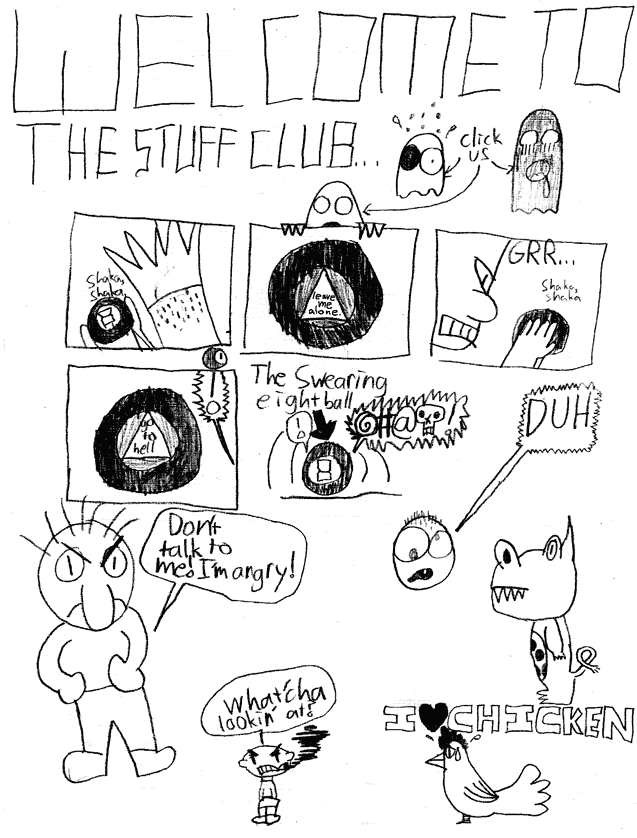 WELCOME TO
THE STUFF CLUB...
click
us
Shaka,
shaka,
8
leave
me
alone.
GRR...
Shaka,
shaka
go
to
hell
The Swearing
eightball
!
@#@!
8
DUH
Don't
talk to
me! I'm angry!
What'cha
lookin' at?
I ♥ CHICKEN